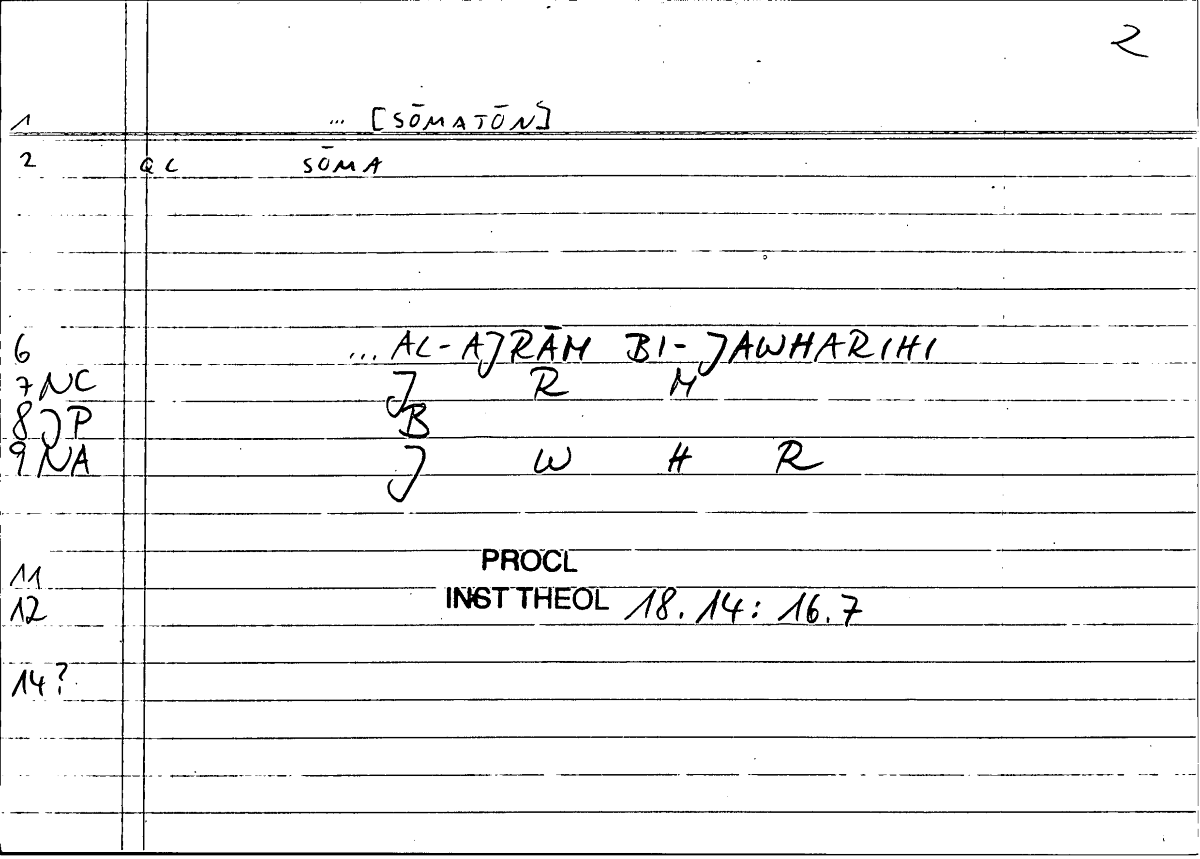 2
1 ... [SŌMATŌN]
2 QC SŌMA
6 ... AL-AJRĀM BI-JAWHARIHI
7 NC J R M
8 JP B
9 NA J W H R
11 PROCL
12 INST THEOL 18.14: 16.7
14?